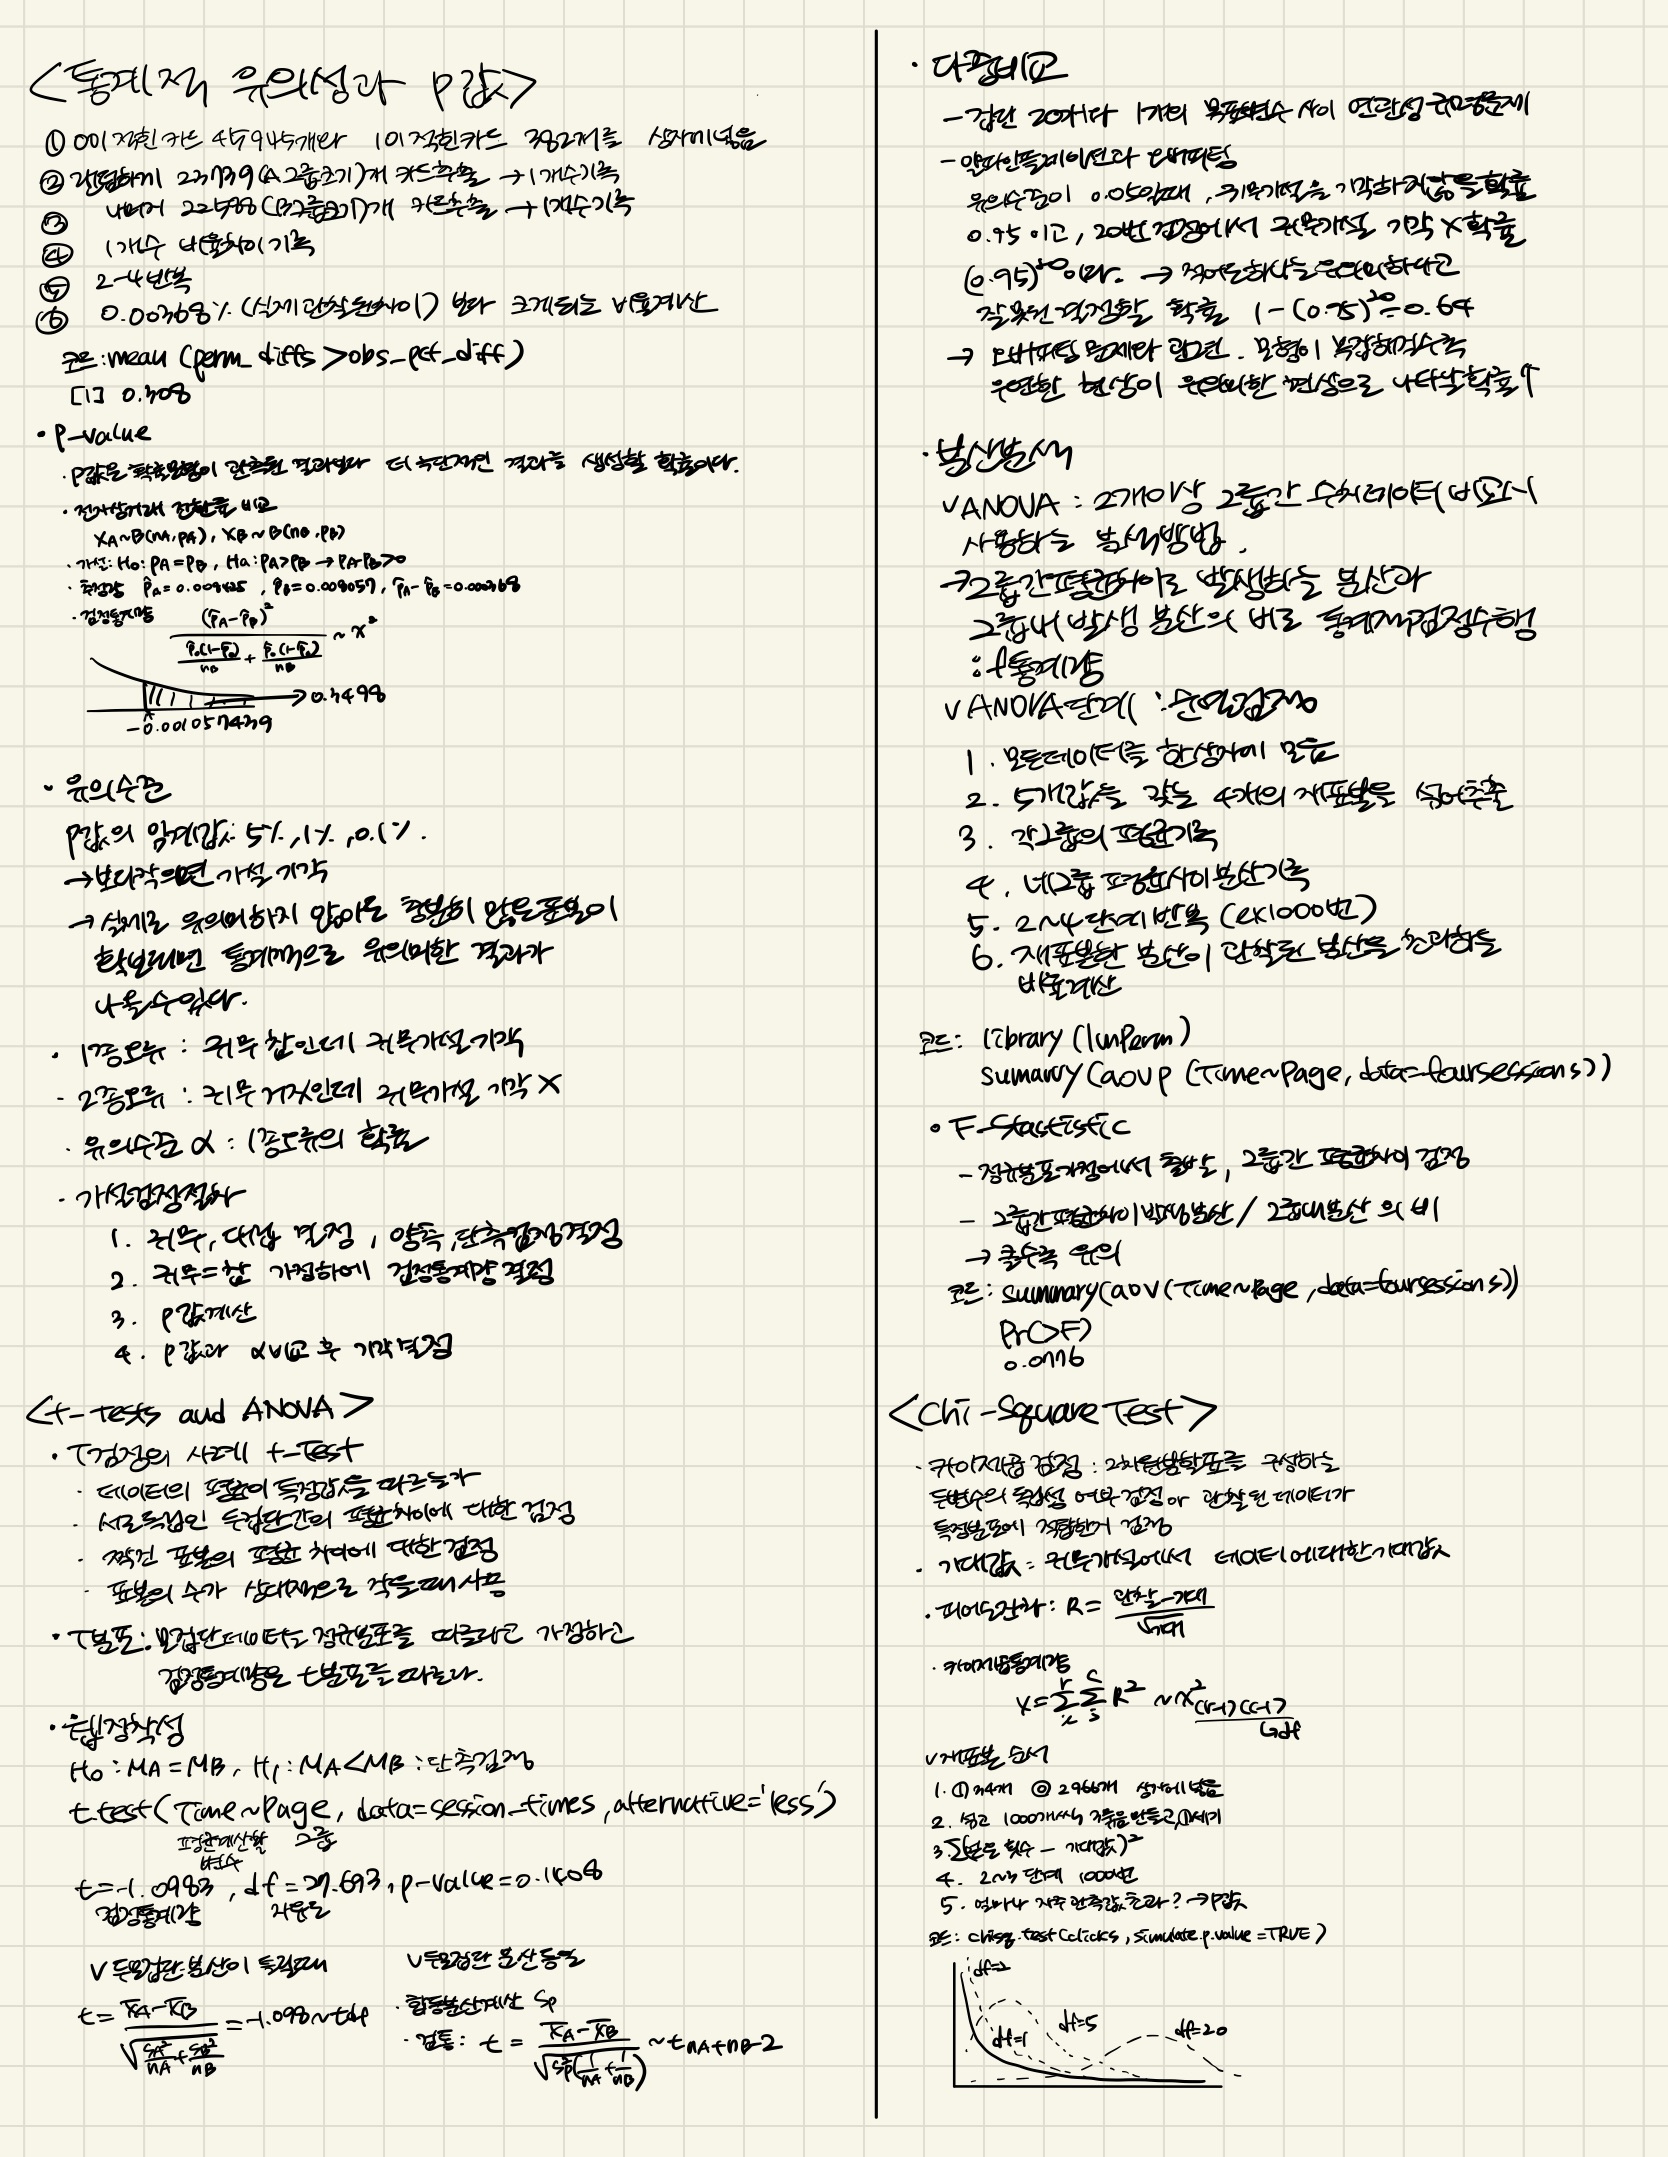 <통계적 유의성과 p값>
① 0이 적힌 카드 45945개와 1이 적힌 카드 382개를 상자에 넣음
② 랜덤하게 23739(A그룹크기)개 카드추출 → 1개수기록
③ 나머지 22588(B그룹크기)개 카드추출 → 1개수기록
④ 1개수 비율차이 기록
⑤ 2-4 반복
⑥ 0.00368% (실제 관찰된 차이) 보다 크게되는 비율계산
코드: mean (perm_diffs > obs_pct_diff)
[1] 0.308
· P-value
· p값은 확률모형이 관측된 결과보다 더 극단적인 결과를 생성할 확률이다.
· 전자상거래 전환율 비교
XA~B(nA, pA), XB~B(nB, pB)
· 가설: H0: pA = pB, Ha: pA > pB → pA-pB>0
· 추정량 p̂A = 0.008425, p̂B = 0.008057, p̂A - p̂B = 0.000368
· 검정통계량 (p̂A - p̂B)²
p̂0(1-p̂0)/nB + p̂0(1-p̂0)/nB ~ x²
→ 0.3498
-0.001057439
· 유의수준
p값의 임계값: 5%, 1%, 0.1%.
→ 보다작으면 가설 기각
→ 실제로 유의미하지 않아도 충분히 많은 표본이
확보되면 통계적으로 유의미한 결과가
나올 수 있다.
· 1종오류 : 귀무 참인데 귀무가설 기각
- 2종오류 : 귀무 거짓인데 귀무가설 기각 X
· 유의수준 α : 1종오류의 확률
· 가설검정절차
1. 귀무, 대립 결정, 양측, 단측검정결정
2. 귀무=참 가정하에 검정통계량 결정
3. p값계산
4. p값과 α비교 후 기각 결정
<t-tests and ANOVA>
· T검정의 사례 t-Test
· 데이터의 평균이 특정값을 따르는가
· 서로독립인 두집단간의 평균차이에 대한 검정
· 짝진 표본의 평균 차이에 대한 검정
· 표본의 수가 상대적으로 작을때 사용
· T분포: 모집단데이터는 정규분포를 따른다고 가정하고
검정통계량은 t분포를 따른다.
· 웹점착성
H0 : MA = MB, H1 : MA < MB : 단측검정
t.test(Time~Page, data=session_times, alternative='less')
평균계산할 그룹
변수
t=-1.0983, df=27.693, p-value=0.1408
검정통계량 자유도
v 두모집단 분산이 독립때
t = x̄A - x̄B / √(sA²/nA + sB²/nB) = -1.098 ~ tdf
v 두모집단 분산동일
· 합동분산계산 Sp
· 검통: t = x̄A - x̄B / √(Sp²(1/nA + 1/nB)) ~ tnA+nB-2
· 다중비교
- 집단 20개다 1개의 목표변수 사이 연관성 규명문제
- 알파인플레이션과 오버피팅
유의수준이 0.05일때, 귀무가설을 기각하지않을 확률
0.95 이고, 20번 검정에서 귀무가설 기각 X 확률
(0.95)²⁰이다. → 적어도하나를 유의미하다고
잘못된 결정할 확률 1-(0.95)²⁰=0.64
→ 오버피팅 문제와 관련. 모형이 복잡해질수록
우연한 현상이 유의미한 현상으로 나타날확률↑
· 분산분석
v ANOVA : 2개이상 그룹간 수치데이터 비교시
사용하는 분석방법.
→ 그룹간평균차이로 발생하는 분산과
그룹내 발생 분산의 비로 통계적검정수행
: f통계량
v ANOVA단계 : 순열검정
1. 모든데이터를 한상자에 모음
2. 5개값을 갖는 4개의 재표본을 섞어추출
3. 각그룹의 평균기록
4. 네그룹 평균사이 분산기록
5. 2~4 단계 반복 (ex1000번)
6. 재표본한 분산이 관찰된 분산을 초과하는
비율계산
코드: library (lmPerm)
sumarry (aovp (Time~Page, data=foursessions))
∘ F-Stastistic
- 정규분포가정에서 출발, 그룹간 평균차이 검정
- 그룹간평균차이발생분산 / 그룹내분산 의 비
→ 클수록 유의
코드: summary(aov(Time~Page, data=foursessions))
Pr(>F)
0.0776
<Chi-Square Test>
· 카이제곱 검정 : 2차원분할표를 구성하는
두변수의 독립성 여부 검정 or 관찰된 데이터가
특정분포에 적합한지 검정
· 기대값 = 귀무가설에서 데이터에대한 기대값
· 피어슨잔차: R = 관찰-기대 / √기대
· 카이제곱통계량
X = Σ Σ R² ~ x²(r-1)(c-1)
↳df
v 재표본 순서
1. ① 34개 ⓪ 2966개 상자에 넣음
2. 섞고 1000개씩 그룹을만들고,①세기
3. Σ(분른 횟수 - 기대값)²
4. 2~3 단계 1000번
5. 얼마나 자주 관측값초과? → P값
코드: chisq.test(clicks, simulate.p.value=TRUE)
df=2
df=1
df=5
df=20